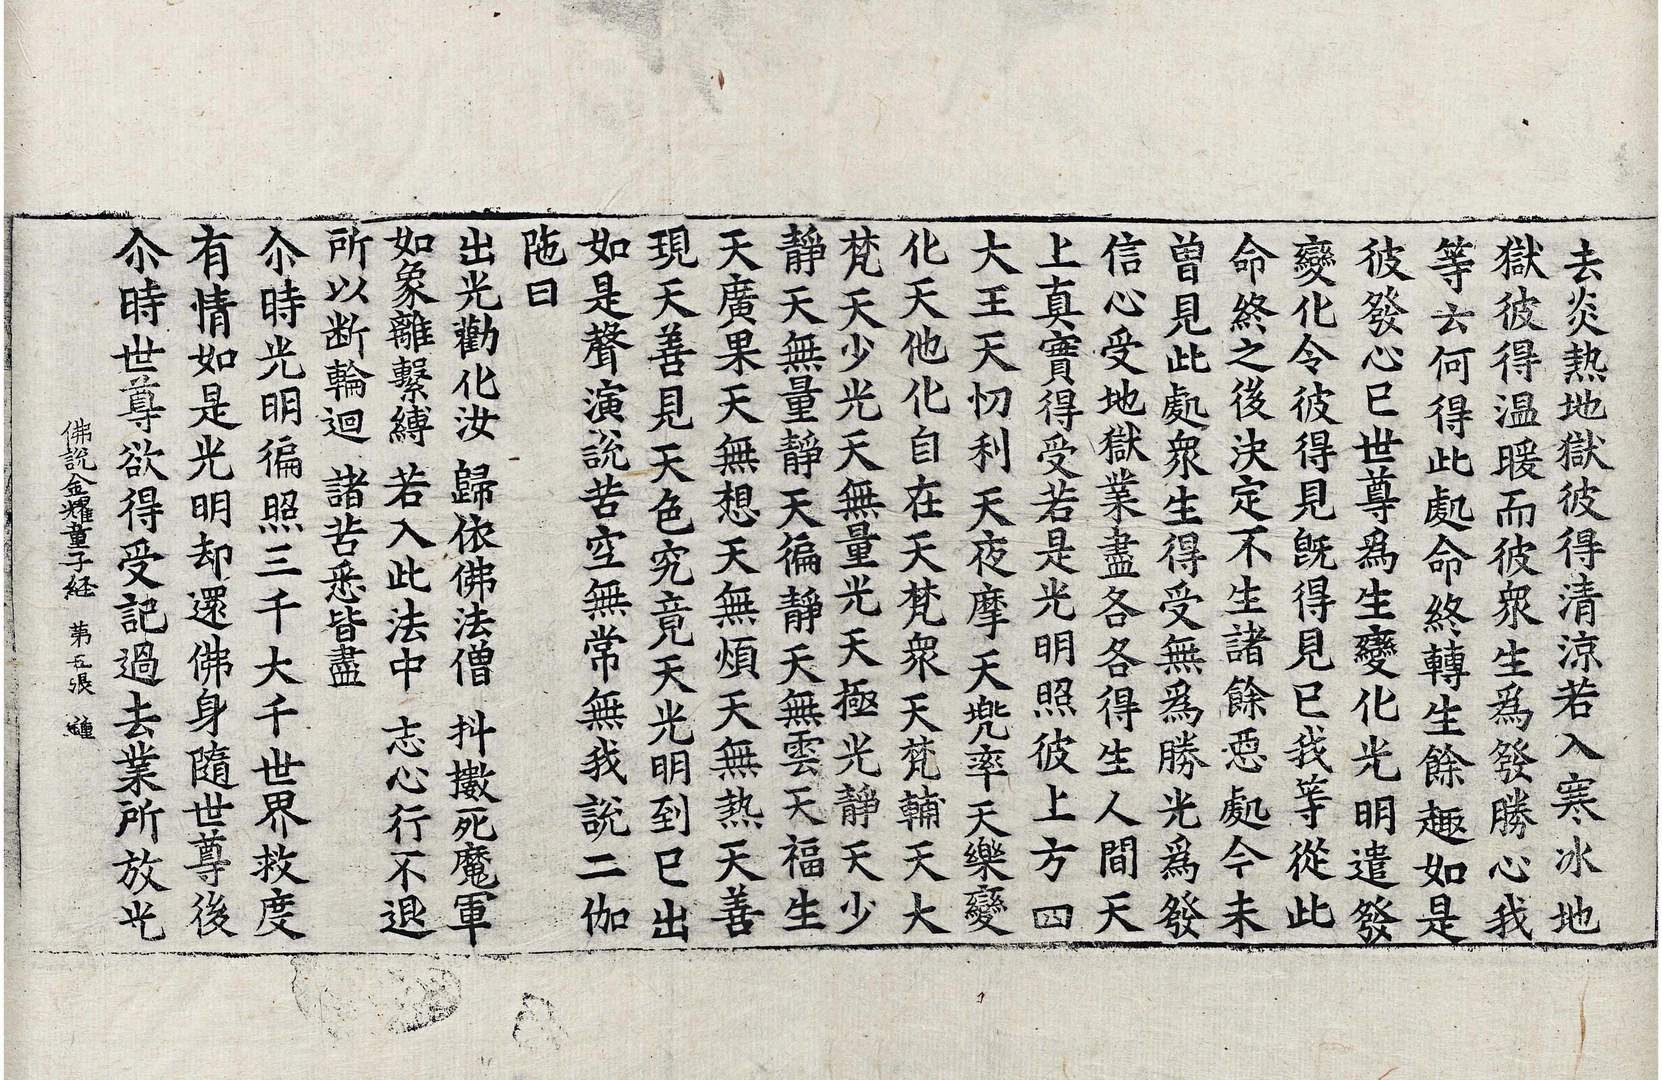 去炎熱地獄彼得清涼若入寒冰地
獄彼得温暖而彼衆生爲發勝心我
等云何得此處命終轉生餘趣如是
彼發心已世尊爲生變化光明遣發
變化令彼得見旣得見已我等從此
命終之後決定不生諸餘惡處今未
曾見此處衆生得受無爲勝光爲發
信心受地獄業盡各各得生人間天
上真實得受若是光明照彼上方四
大王天忉利天夜摩天兠率天樂變
化天他化自在天梵衆天梵輔天大
梵天少光天無量光天極光靜天少
靜天無量靜天徧靜天無雲天福生
天廣果天無想天無煩天無熱天善
現天善見天色究竟天光明到已出
如是聲演説苦空無常無我説二伽
陁曰
出光勸化汝　歸依佛法僧　抖擻死魔軍
如象離繫縛　若入此法中　志心行不退
所以断輪迴　諸苦悉皆盡
尒時光明徧照三千大千世界救度
有情如是光明却還佛身隨世尊後
尒時世尊欲得受記過去業所放光
佛説金耀童子経　第五張